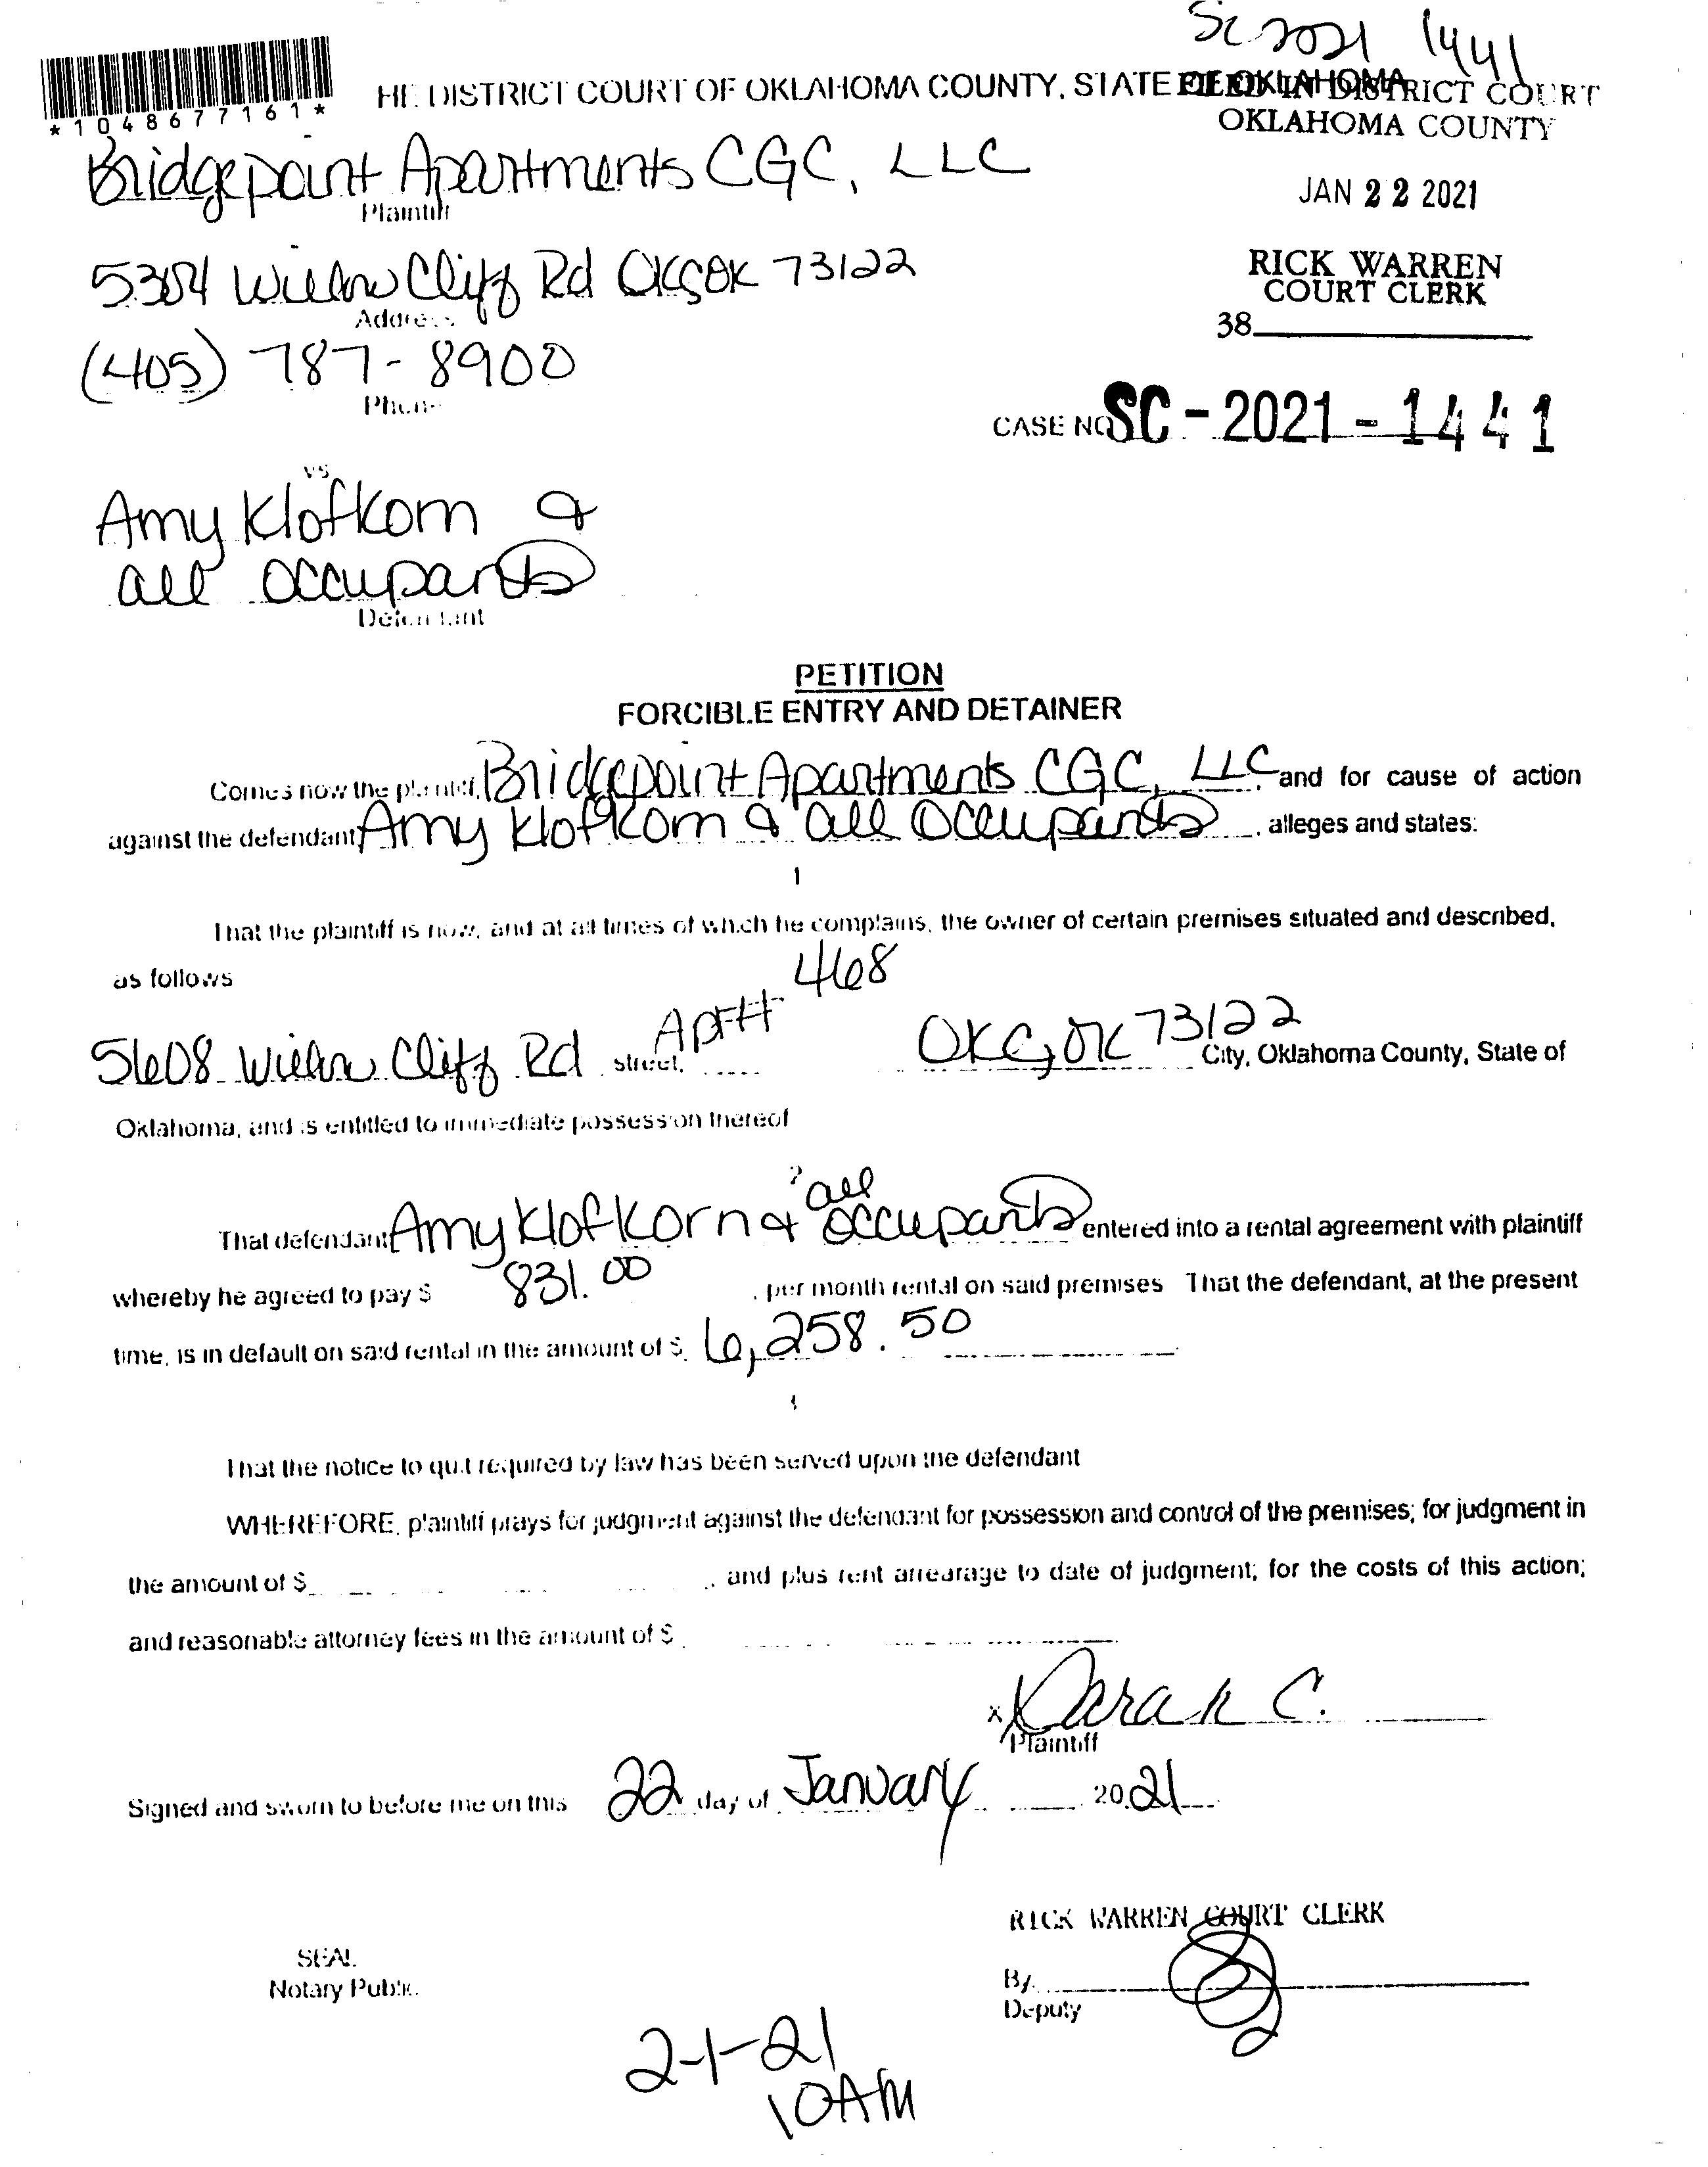 SC 2021 1441
*1048677161*
HE DISTRICT COURT OF OKLAHOMA COUNTY, STATE OF OKLAHOMA
FILED IN DISTRICT COURT
OKLAHOMA COUNTY
Bridgepoint Apartments CGC, LLC
Plaintiff
JAN 22 2021
5304 Willow Cliff Rd OKC OK 73122
Address
RICK WARREN
COURT CLERK
38
(405) 787-8900
Phone
CASE NO SC-2021-1441
vs
Amy Klofkorn &
all occupants
Defendant
PETITION
FORCIBLE ENTRY AND DETAINER
Comes now the plaintiff, Bridgepoint Apartments CGC, LLC, and for cause of action
against the defendant, Amy Klofkorn & all occupants, alleges and states:
1
That the plaintiff is now, and at all times of which he complains, the owner of certain premises situated and described,
as follows
5608 Willow Cliff Rd street, Apt# 468 OKC, OK 73122 City, Oklahoma County, State of
Oklahoma, and is entitled to immediate possession thereof
2
That defendant Amy Klofkorn & all occupants entered into a rental agreement with plaintiff
whereby he agreed to pay $ 831.00, per month rental on said premises That the defendant, at the present
time, is in default on said rental in the amount of $ 6,258.50
That the notice to quit required by law has been served upon the defendant
WHEREFORE, plaintiff prays for judgment against the defendant for possession and control of the premises; for judgment in
the amount of $ , and plus rent arrearage to date of judgment; for the costs of this action;
and reasonable attorney fees in the amount of $
x Karah C.
Plaintiff
Signed and sworn to before me on this 22 day of January 2021
RICK WARREN COURT CLERK
SEAL
Notary Public
By
Deputy
2-1-21
10AM